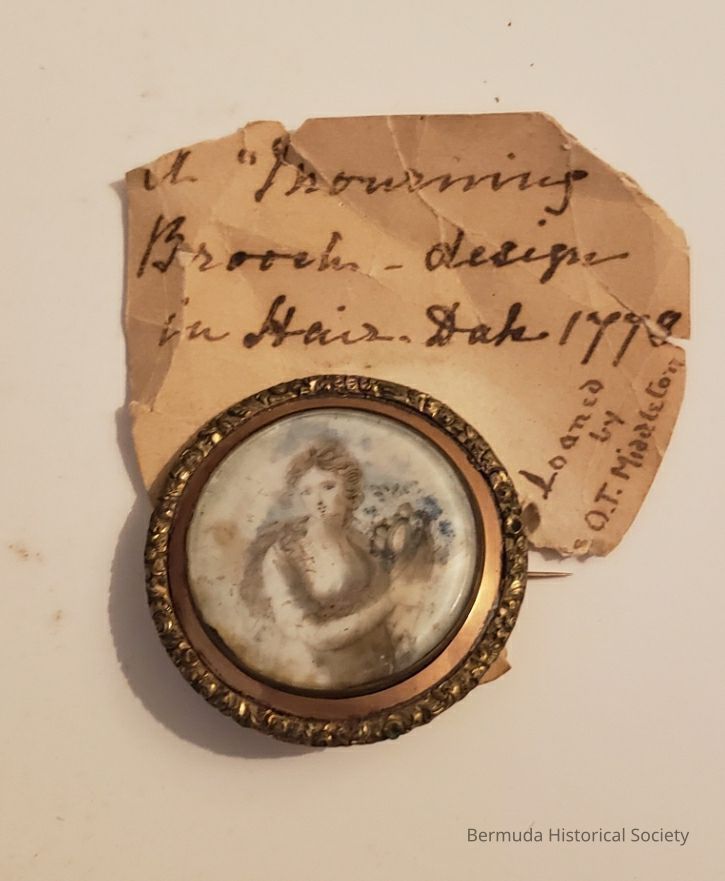 A "Mourning
Brooch - design
in Hair. Date 1778
Loaned
by
O.T. Middleton
Bermuda Historical Society